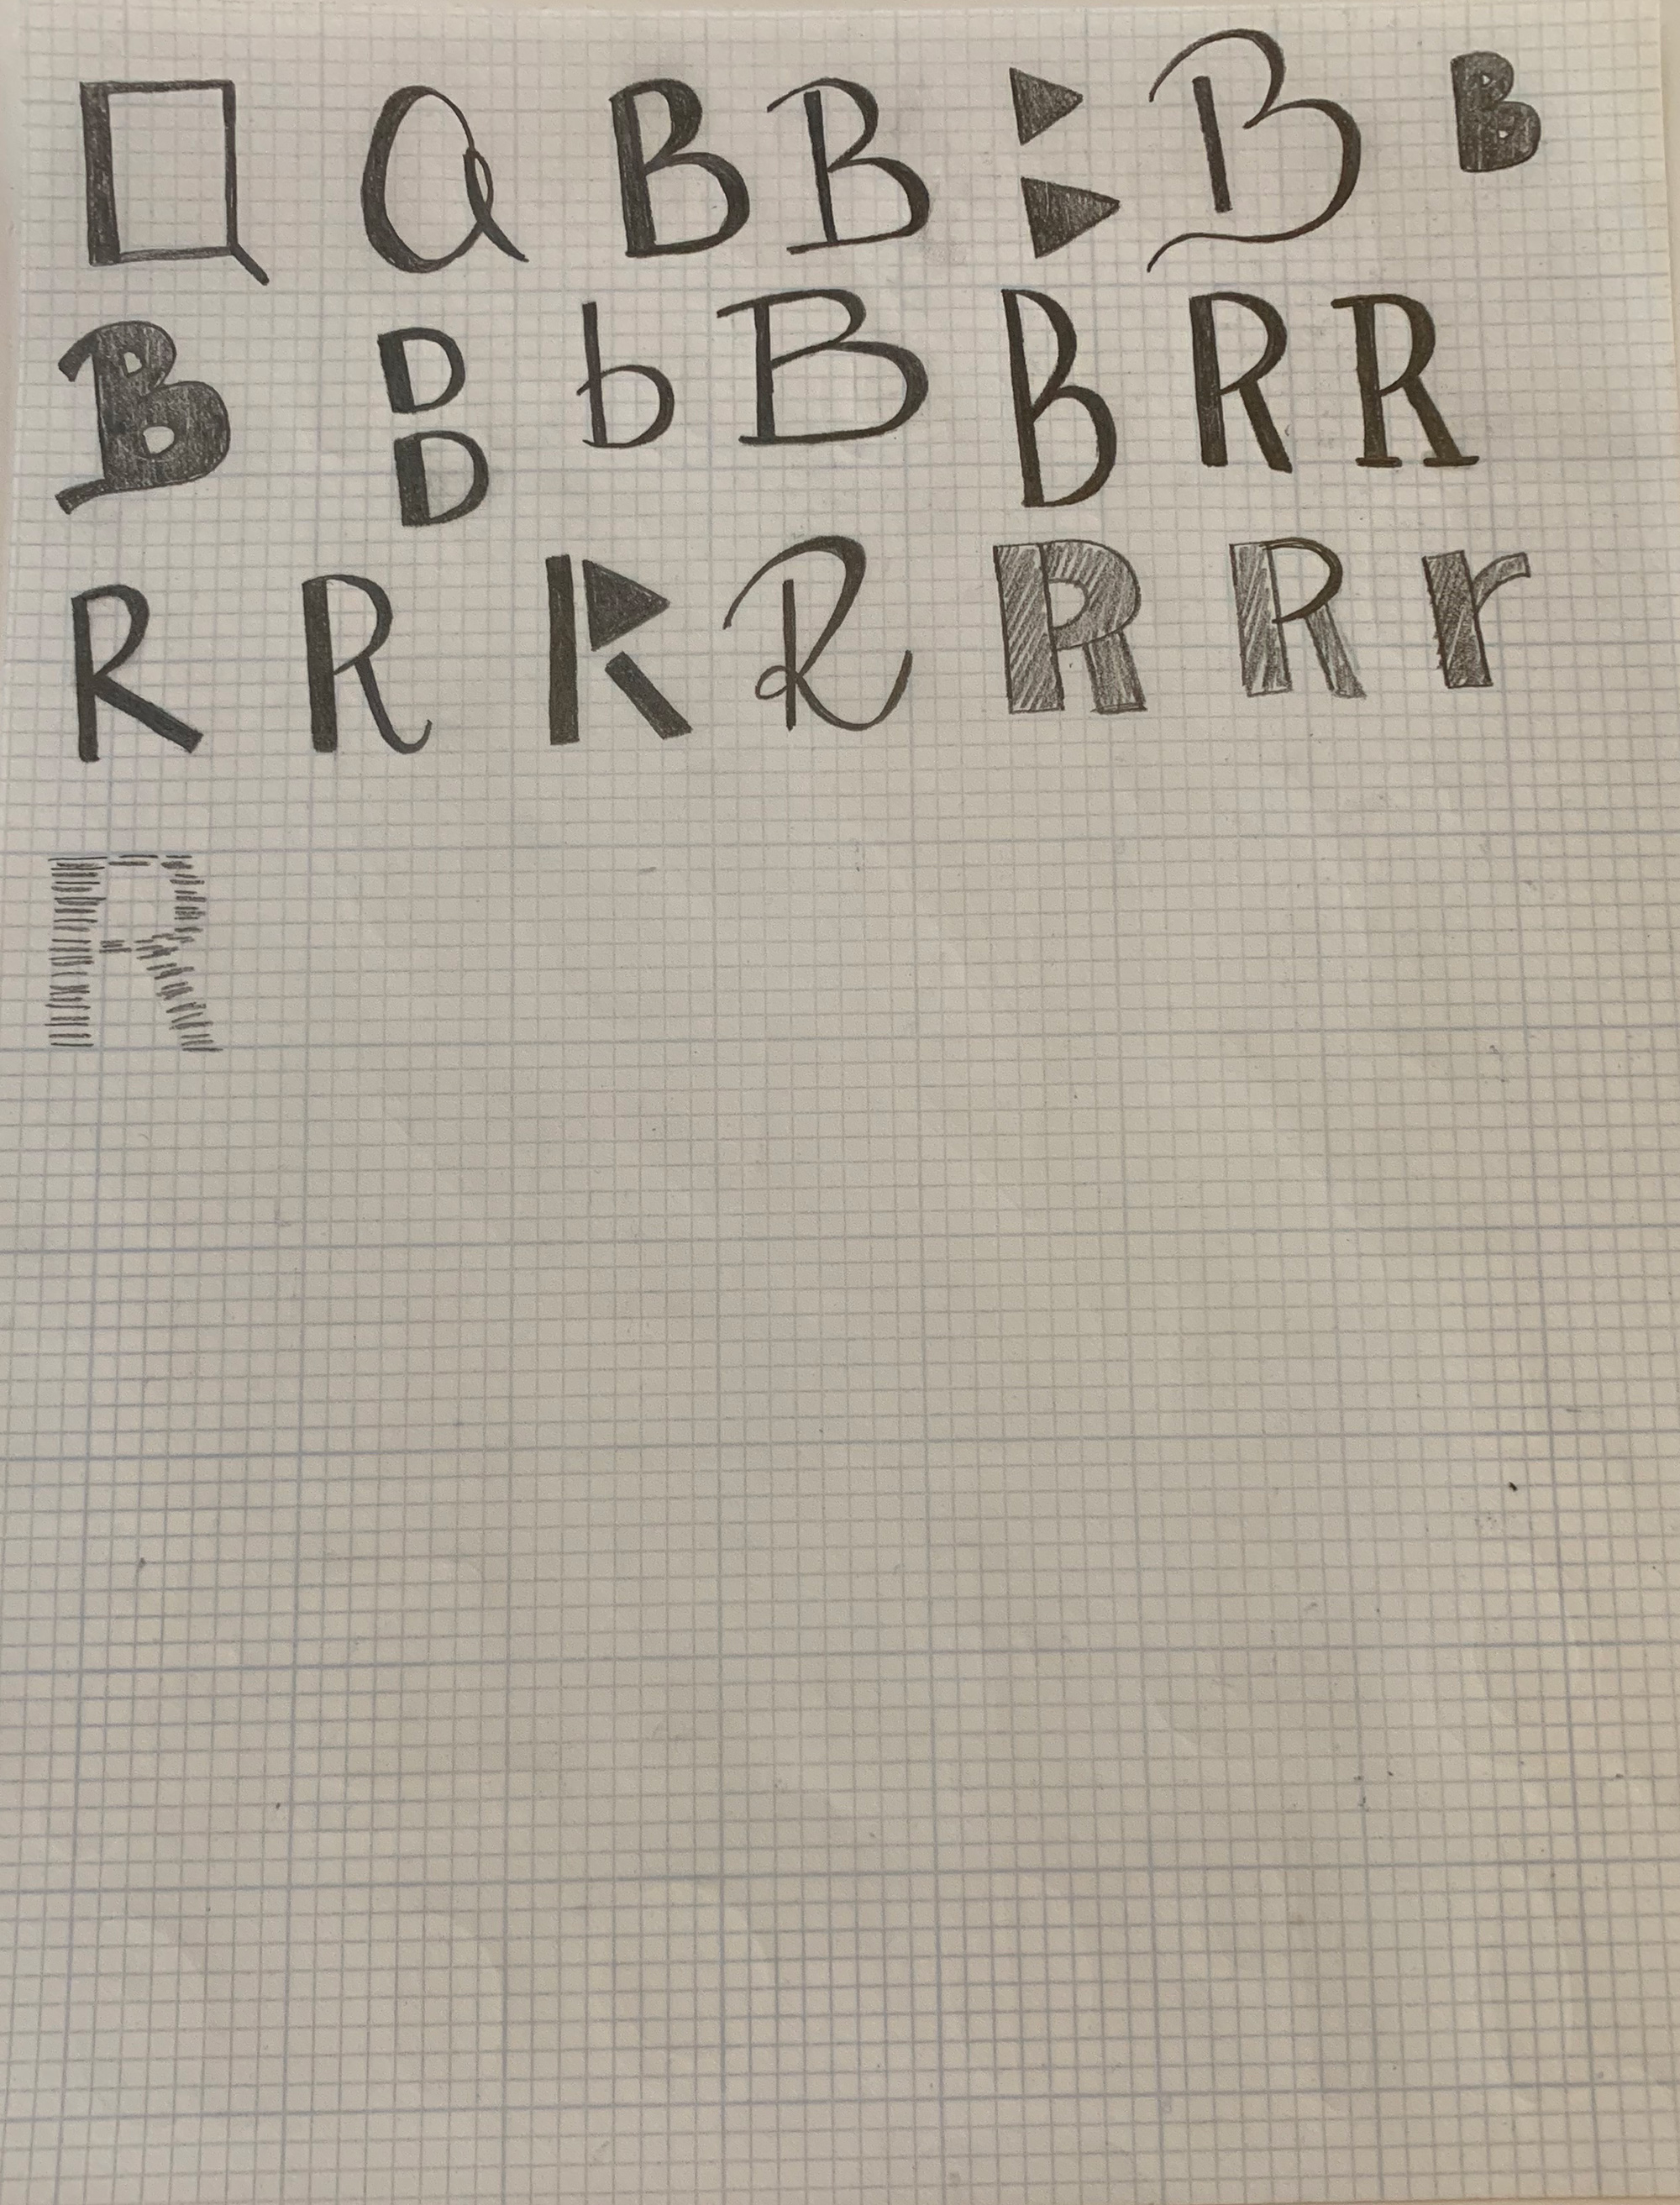 Q Q B B B B B
B B b B B R R
R R R R R R r
R